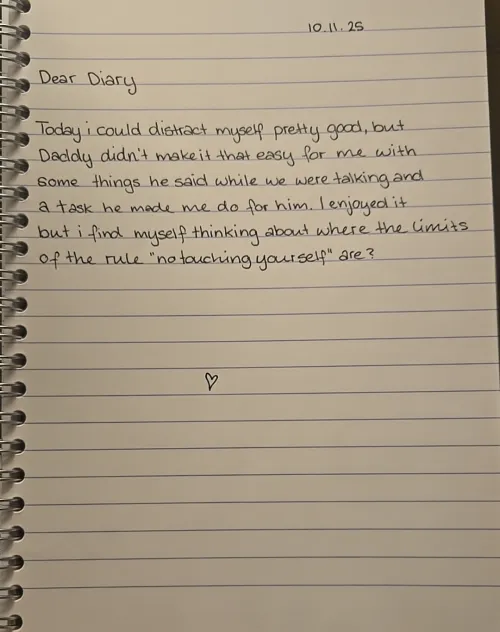 10.11.25
Dear Diary
Today i could distract myself pretty good, but
Daddy didn't make it that easy for me with
some things he said while we were talking and
a task he made me do for him. I enjoyed it
but i find myself thinking about where the limits
of the rule "no touching yourself" are?